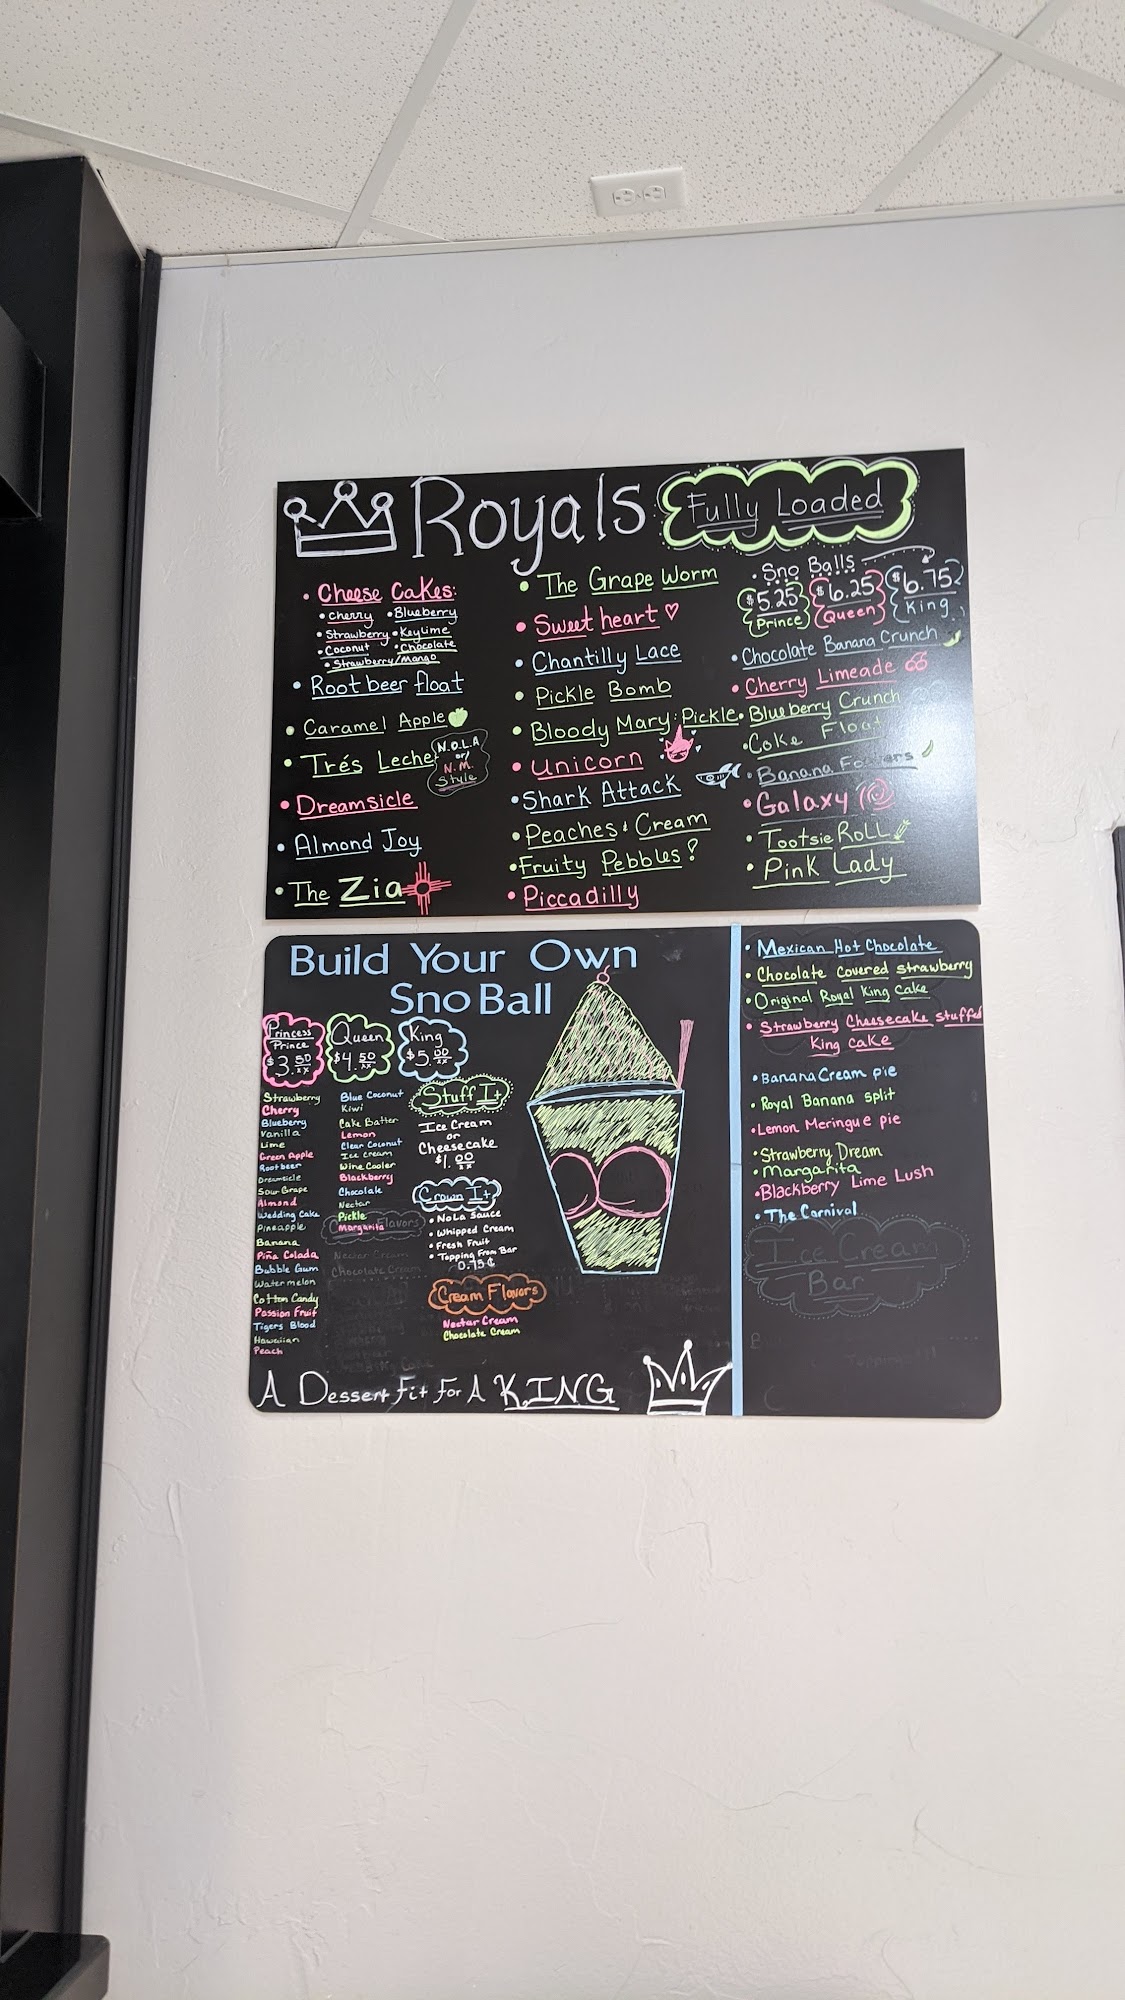 Royals
Fully Loaded
• Cheese Cakes:
• Cherry • Blueberry
• Strawberry • Keylime
• Coconut • Chocolate
• Strawberry/Mango
• Root beer float
• Caramel Apple
• Trés Leche
N.O.L.A
or/
N.M.
Style
• Dreamsicle
• Almond Joy
• The Zia
• The Grape Worm
• Sweet heart ♡
• Chantilly Lace
• Pickle Bomb
• Bloody Mary Pickle
• Unicorn
• Shark Attack
• Peaches & Cream
• Fruity Pebbles!
• Piccadilly
• Sno Balls
$5.25 $6.25 $6.75
Prince Queen King
• Chocolate Banana Crunch
• Cherry Limeade
• Blueberry Crunch
• Coke Float
• Banana
• Galaxy
• Tootsie Roll
• Pink Lady
Build Your Own
Sno Ball
Princess
Prince
$3.50
Queen
$4.50
King
$5.00
Strawberry
Cherry
Blueberry
Vanilla
Lime
Green Apple
Root beer
Dreamsicle
Sour Grape
Almond
Wedding Cake
Pineapple
Banana
Piña Colada
Bubble Gum
Watermelon
Cotton Candy
Passion Fruit
Tigers Blood
Hawaiian
Peach
Blue Coconut
Kiwi
Cake Batter
Lemon
Clear Coconut
Ice cream
Wine Cooler
Blackberry
Chocolate
Nectar
Pickle
Margarita
Flavors
Nectar Cream
Chocolate Cream
Stuff It
Ice Cream
or
Cheesecake
$1.00
Crown It
• NoLa Sauce
• Whipped Cream
• Fresh Fruit
• Topping From Bar
0.75¢
Cream Flavors
Nectar Cream
Chocolate Cream
A Dessert Fit For A KING
• Mexican Hot Chocolate
• Chocolate covered strawberry
• Original Royal King Cake
• Strawberry Cheesecake stuffed
King cake
• Banana Cream pie
• Royal Banana split
• Lemon Meringue pie
• Strawberry Dream
• Margarita
• Blackberry Lime Lush
• The Carnival
Ice Cream
Bar